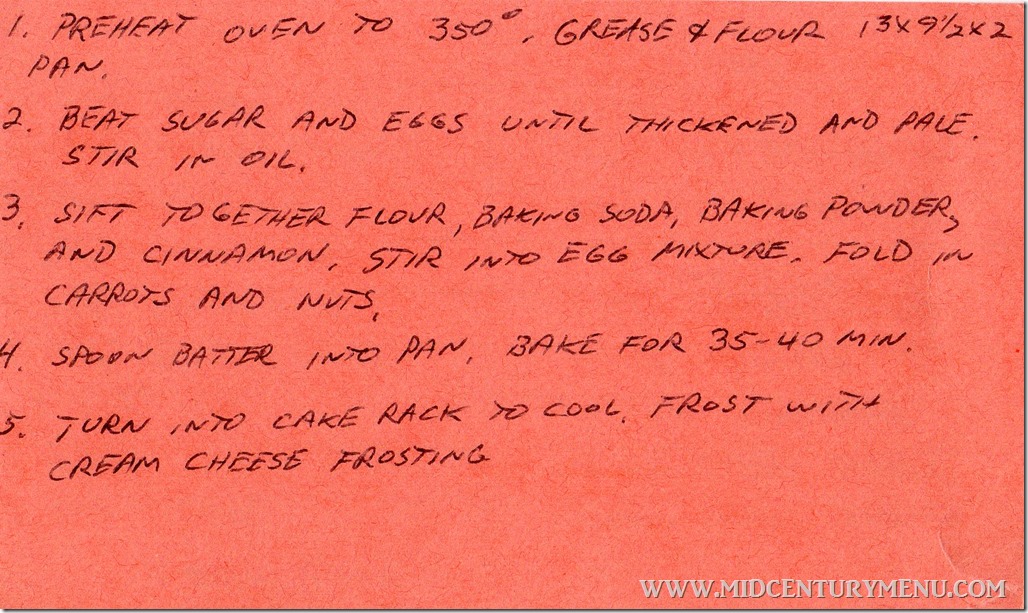 1. PREHEAT OVEN TO 350°. GREASE & FLOUR 13x9½x2
PAN.
2. BEAT SUGAR AND EGGS UNTIL THICKENED AND PALE.
STIR IN OIL.
3. SIFT TOGETHER FLOUR, BAKING SODA, BAKING POWDER,
AND CINNAMON. STIR INTO EGG MIXTURE. FOLD IN
CARROTS AND NUTS.
4. SPOON BATTER INTO PAN. BAKE FOR 35-40 MIN.
5. TURN INTO CAKE RACK TO COOL. FROST WITH
CREAM CHEESE FROSTING
WWW.MIDCENTURYMENU.COM